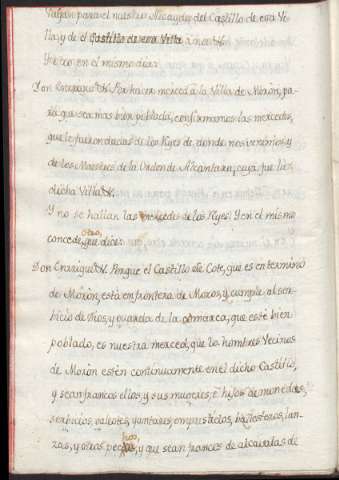 para el nutstro Alcayde del Castillo de esa Vi-
lla, y de el Castillo de essa Villa
en el mismo dia:
Don Enrique &. Por hacer merced à la Villa de Moròn, pa-
ra que sea mas bien poblada, confirmamos las mercedes,
que le fueron dadas de los Reyes de donde nos venimos, y
de los Maestres de la Orden de Alcantara, cuya fue la
dicha Villa &.
Y no se hallan las mercedes de los Reyes. Y en el mismo
otro,
concede, que dice:
Don Enrique &. Porque el Castillo de Cote, que es en termino
de Moròn, està en frontera de Moros, y cumple al ser-
bicio de Dios, y guarda de la comarca, que esté bien
poblado, es nuestra merced, que los hombres Vecinos
de Moròn estèn continuamente en el dicho Castillo,
y sean francos ellos, y sus mugeres, è hijos de monedas,
serbicios, y ayuntares, emprestidos, ballesteros, lan-
zas, y otros pechos, y que sean francos de alcavalas de